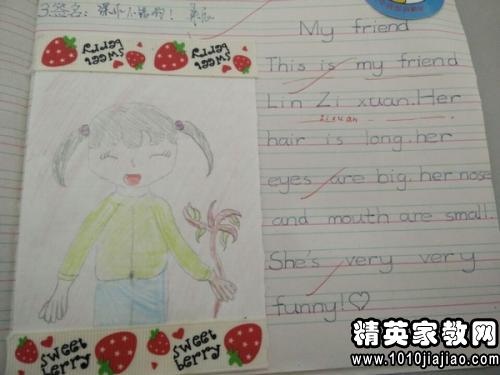 3签名：
My friend
sweet berry
This is my friend
Lin Zi xuan. Her
Zixuan
hair is long. her
eyes are big. her nose
and mouth are small
She's very very
funny!♡
sweet berry
sweet berry
精英家教网
www.1010jiajiao.com